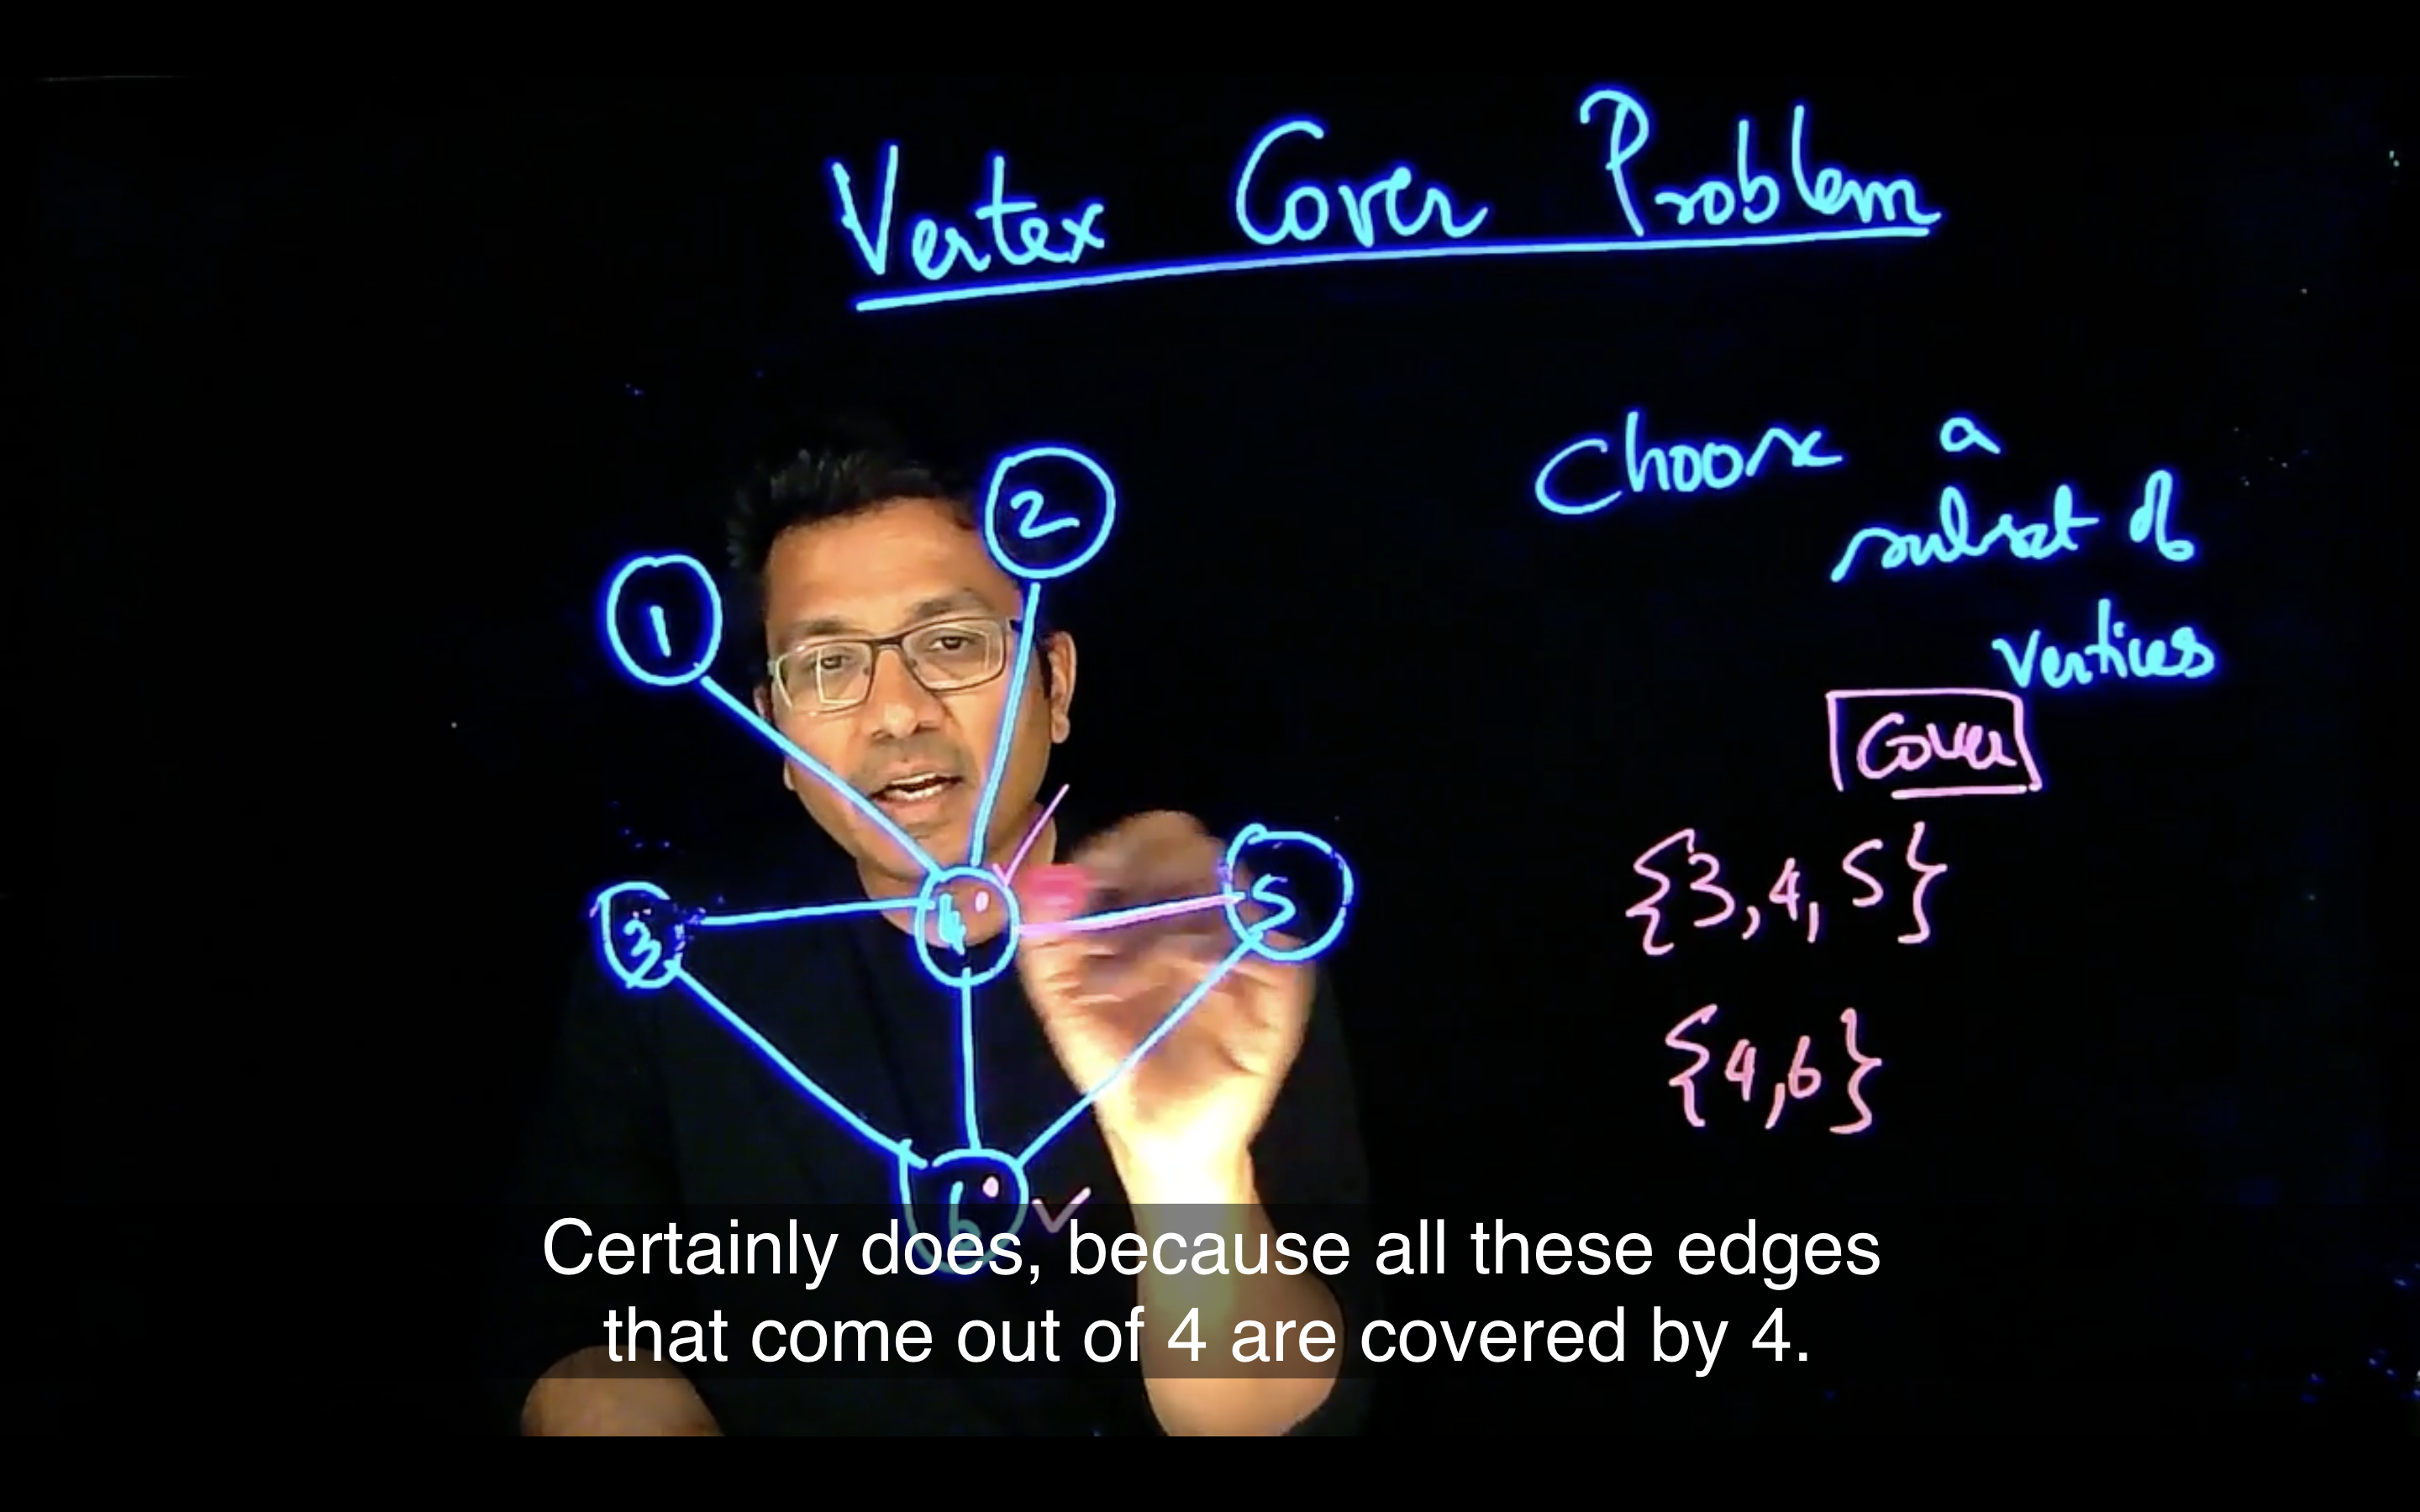 Vertex Cover Problem
Choose a
subset of
vertices
Cover
{3,4,5}
{4,6}
2
1
3
4
5
6
Certainly does, because all these edges
that come out of 4 are covered by 4.